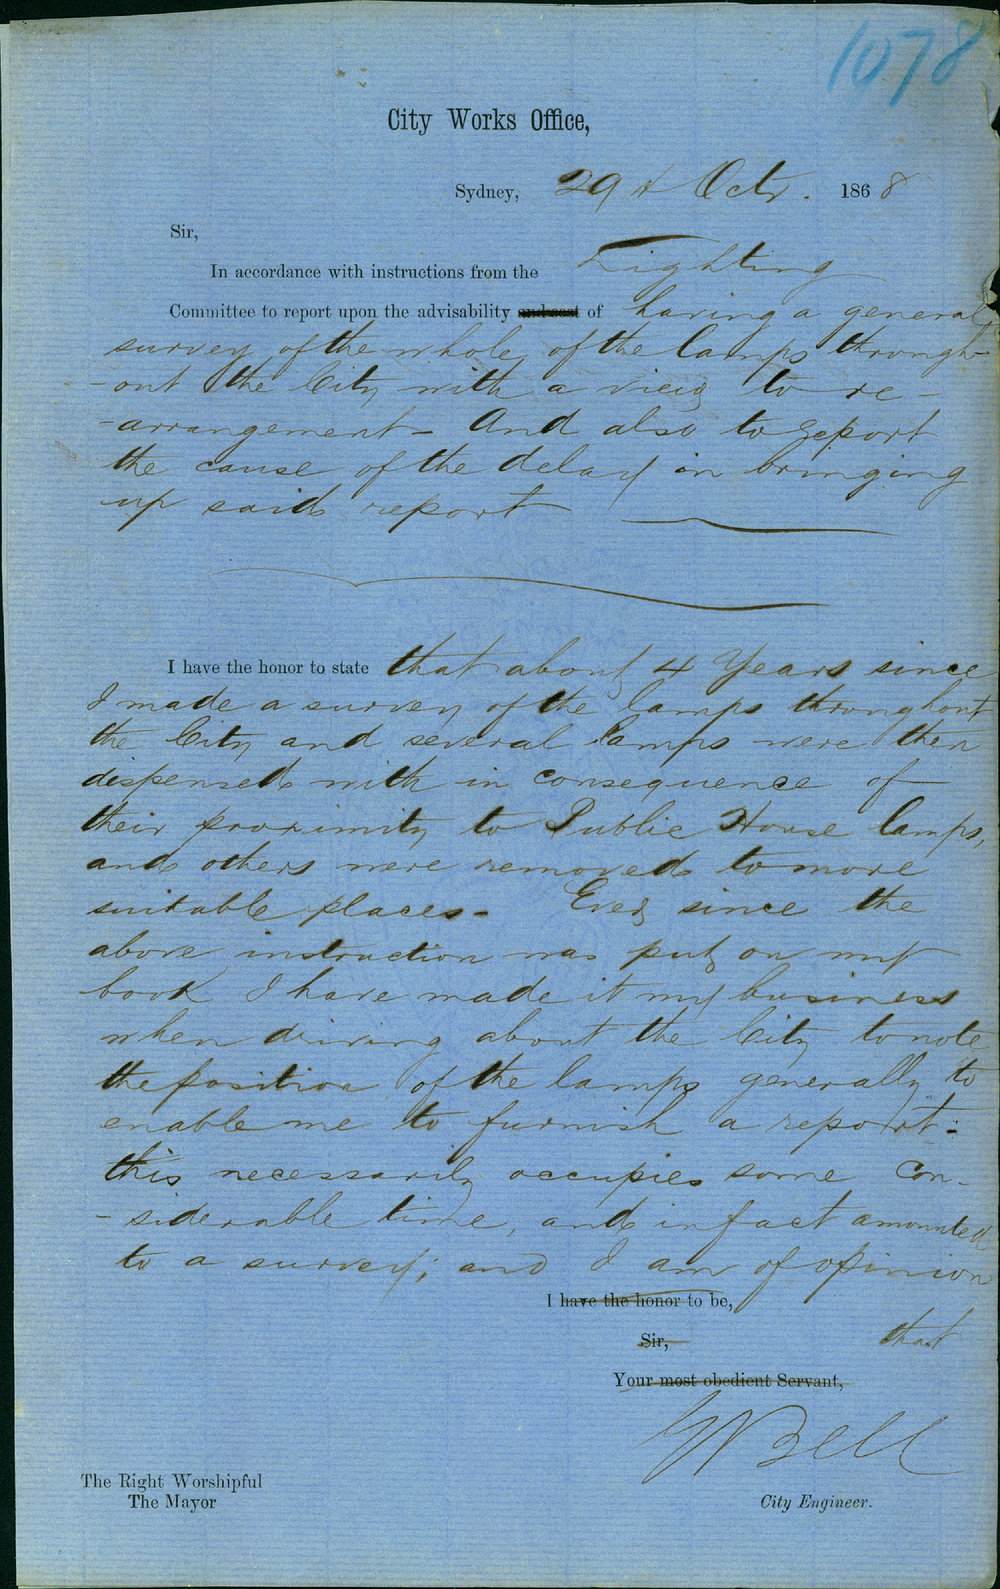 1078
City Works Office,
Sydney, 29th Octr. 1868
Sir,
In accordance with instructions from the Lighting
Committee to report upon the advisability and cost of having a general
survey of the whole of the lamps through-
-out the City with a view to re-
-arrangement - And also to report
the cause of the delay in bringing
up said report
I have the honor to state that about 4 Years since
I made a survey of the lamps throughout
the City and several lamps were then
dispensed with in consequence of
their proximity to Public House lamps,
and others were removed to more
suitable places - Ever since the
above instruction was put on my
book I have made it my business
when driving about the City to note
the position of the lamps generally to
enable me to furnish a report:
this necessarily occupies some con-
-siderable time, and in fact amounted
to a survey; and I am of opinion
I have the honor to be,
Sir, that
Your most obedient Servant,
Bell
The Right Worshipful
The Mayor City Engineer.